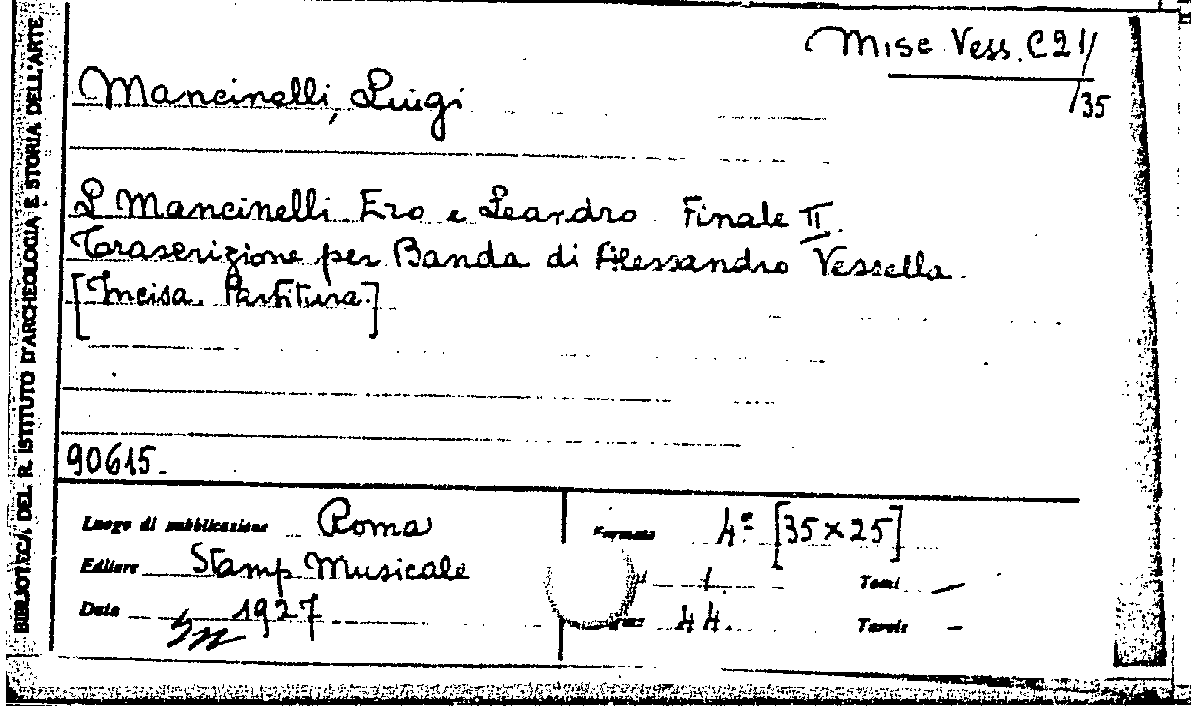 BIBLIOTECA DEL R. ISTITUTO D'ARCHEOLOGIA E STORIA DELL'ARTE
Misc Vess. C21/
/35
Mancinelli, Luigi
L Mancinelli Ero e Leandro Finale II.
Trascrizione per Banda di Alessandro Vessella.
[Incisa Partitura]
90615.
Luogo di pubblicazione Roma
Formato 4º [35×25]
Editore Stamp Musicale
1 Tomi —
Data 1927
44. Tavole –